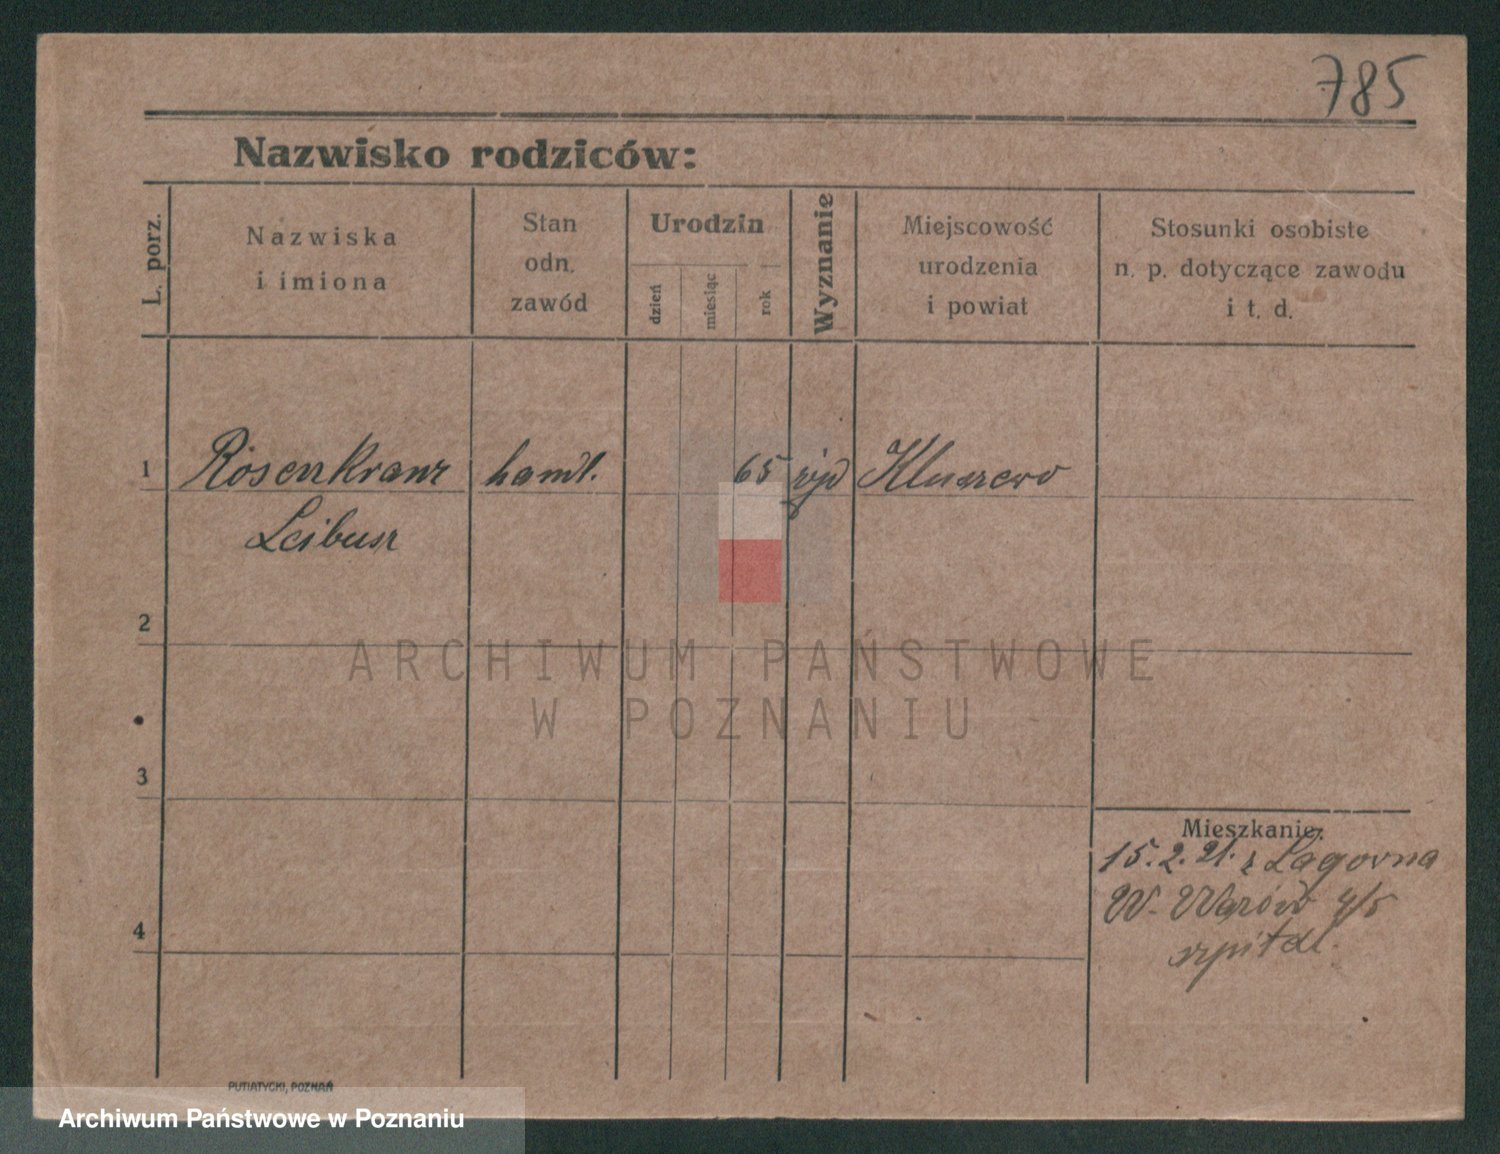 785
Nazwisko rodziców:
L. porz.
Nazwiska
i imiona
Stan
odn.
zawód
Urodzin
dzień
miesiąc
rok
Wyznanie
Miejscowość
urodzenia
i powiat
Stosunki osobiste
n. p. dotyczące zawodu
i t. d.
1 Rosenkranz handl. 65 żyd Kluszewo
Leibusz
2
3
4
Mieszkanie:
15.2.21. z Zagorna
W. 4/5
szpital.
PUTIATYCKI, POZNAŃ
ARCHIWUM PAŃSTWOWE
W POZNANIU
Archiwum Państwowe w Poznaniu